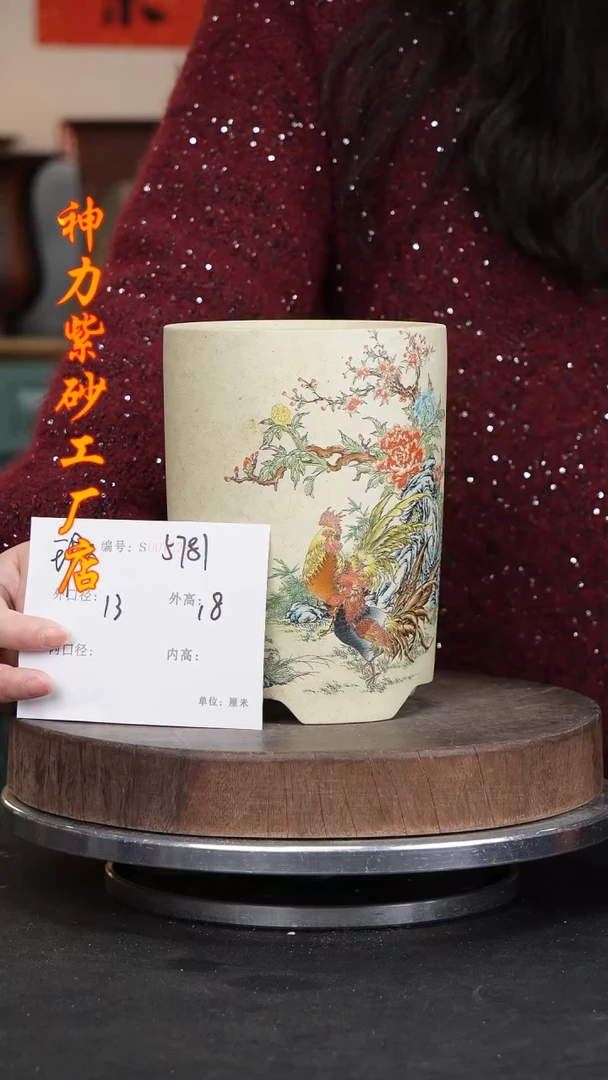 神力紫砂工厂店
编号: S00 5781
外口径: 13 外高: 18
内口径: 内高:
单位: 厘米